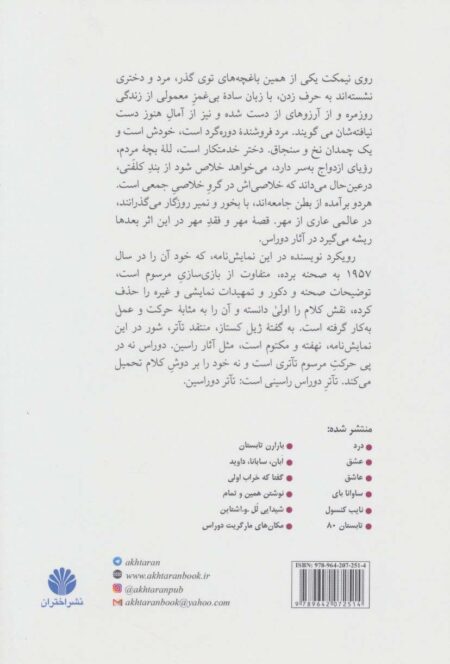 روی نیمکت یکی از همین باغچه‌های توی گذر، مرد و دختری
نشسته‌اند به حرف زدن، با زبان سادهٔ بی‌غمزِ معمولی از زندگی
روزمره و از آرزوهای از دست شده و نیز از آمالِ هنوز دست
نیافته‌شان می گویند. مرد فروشندهٔ دوره‌گرد است، خودش است و
یک چمدان نخ و سنجاق. دختر خدمتکار است، للهٔ بچهٔ مردم،
رؤیای ازدواج به‌سر دارد، می‌خواهد خلاص شود از بندِ کلفَتی،
درعین‌حال می‌داند که خلاصی‌اش در گروِ خلاصیِ جمعی است.
هردو برآمده از بطن جامعه‌اند، با بخور و نمیر روزگار می‌گذرانند،
در عالمی عاری از مهر. قصهٔ مهر و فقدِ مهر در این اثر بعدها
ریشه می‌گیرد در آثار دوراس.
رویکرد نویسنده در این نمایش‌نامه، که خود آن را در سال
۱۹۵۷ به صحنه برده، متفاوت از بازی‌سازیِ مرسوم است،
توضیحات صحنه و دکور و تمهیدات نمایشی و غیره را حذف
کرده، نقش کلام را اولیٰ دانسته و آن را به مثابهٔ حرکت و عمل
به‌کار گرفته است. به گفتهٔ ژیل کستاز، منتقد تآتر، شور در این
نمایش‌نامه، نهفته و مکتوم است، مثل آثار راسین. دوراس نه در
پی حرکتِ مرسوم تآتری است و نه خود را بر دوشِ کلام تحمیل
می‌کند. تآترِ دوراس راسینی است: تآتر دوراسین.
منتشر شده:
درد
عشق
عاشق
ساوانا بای
نایب کنسول
تابستان ۸۰
بارارن تابستان
اَبان، سابانا، داوید
گفتا که خراب اولی
نوشتن همین و تمام
شیدایی لُل .و.اشتاین
مکان‌های مارگریت دوراس
akhtaran
www.akhtaranbook.ir
@akhtaranpub
akhtaranbook@yahoo.com
نشر اختران
ISBN: 978-964-207-251-4
9789642072514